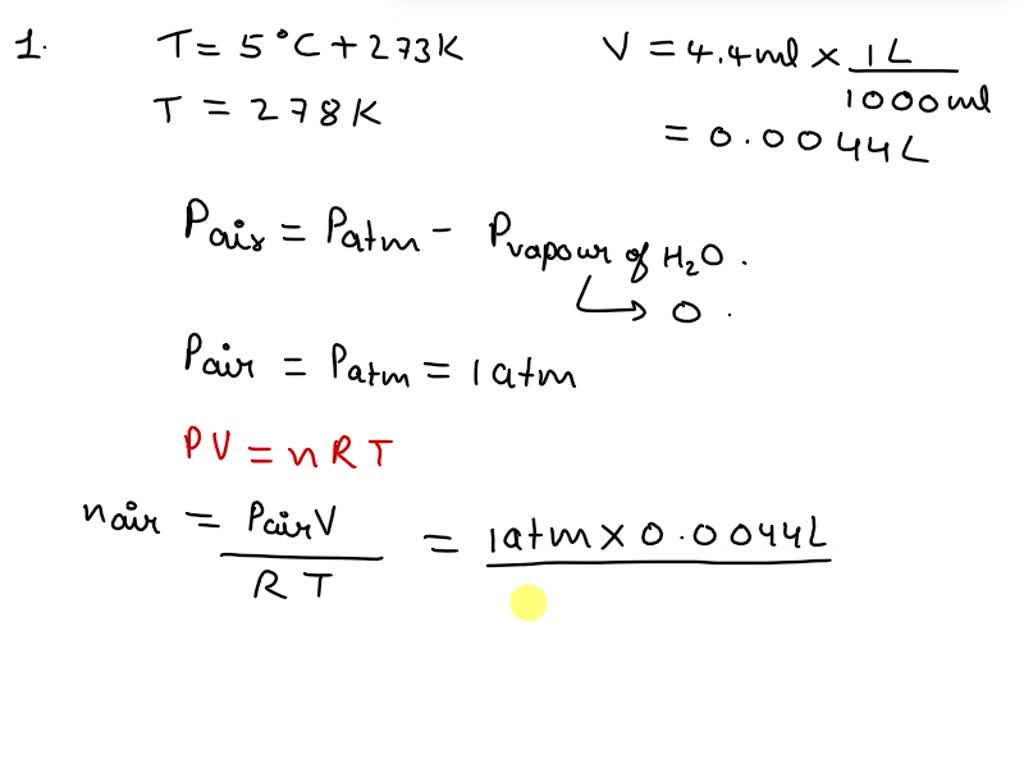 1. T = 5°C + 273K
T = 278K
V = 4.4ml × 1L / 1000ml
= 0.0044L
Pair = Patm - Pvapour of H₂O.
↳ 0.
Pair = Patm = 1atm
PV = nRT
nair = PairV / RT = 1atm × 0.0044L